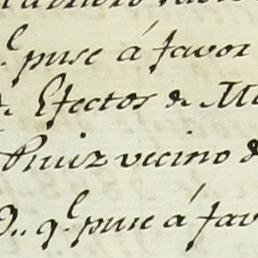 q.l puse á favor
Efectos de M
Ruiz vecino d
D.. q.l puse á fav